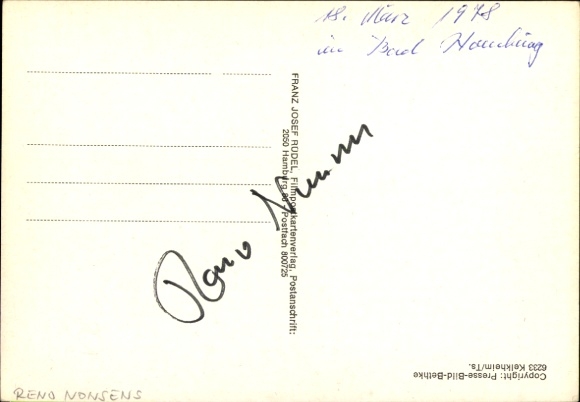 18. März 1978
in Bad Homburg
FRANZ JOSEF RÜDEL, Filmpostkartenverlag, Postanschrift:
2050 Hamburg 80 - Postfach 800725
Reno Nonsens
Copyright: Presse-Bild-Bethke
6233 Kelkheim/Ts.
RENO NONSENS